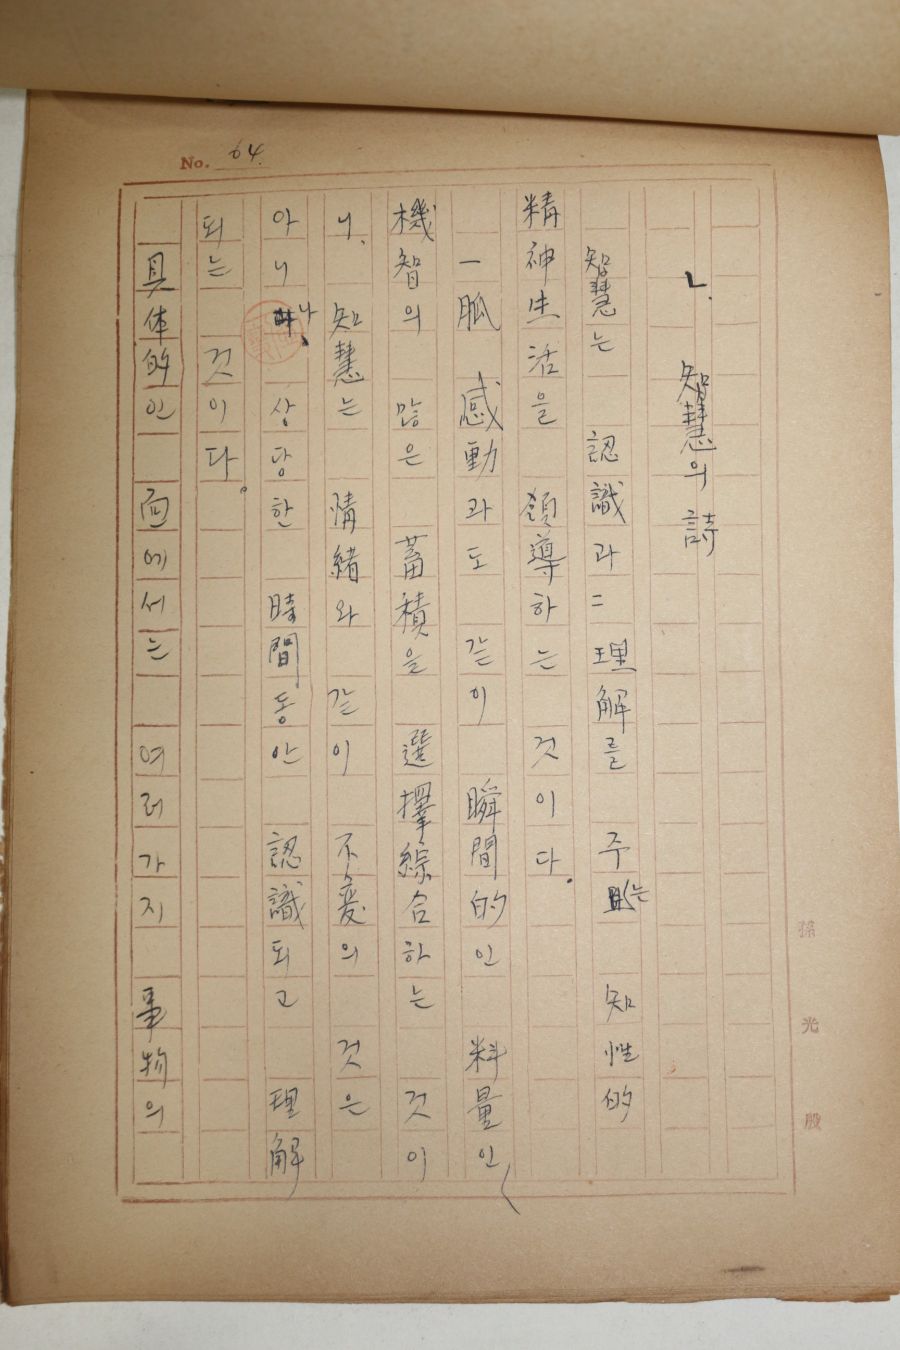 No. 64.
ㄴ. 智慧의 詩
智慧는 認識과 理解를 주는 知性的
精神生活을 領導하는 것이다.
一脈 感動과도 같이 瞬間的인 料量인
機智의 많은 蓄積을 選擇綜合하는 것이
니. 知慧는 情緖와 같이 不変의 것은
아니나 상당한 時間동안 認識되고 理解
되는 것이다.
具体的인 面에서는 여러가지 事物의
孫光殷